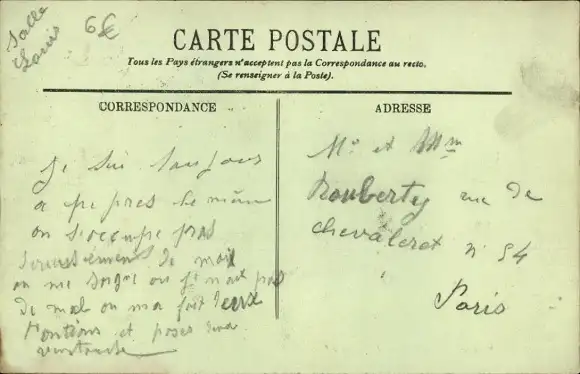 Salle
Louis
6€
CARTE POSTALE
Tous les Pays étrangers n'acceptent pas la Correspondance au recto.
(Se renseigner à la Poste).
CORRESPONDANCE
ADRESSE
je sui toujours
a pe pres le même
on s'occupe pas
de moi
on me soigne ou je n'ait pas
de mal on ma fait deux
et poser
ventouse
Mr et Mm
Rouberty rue de
chevaleret n° 54
Paris